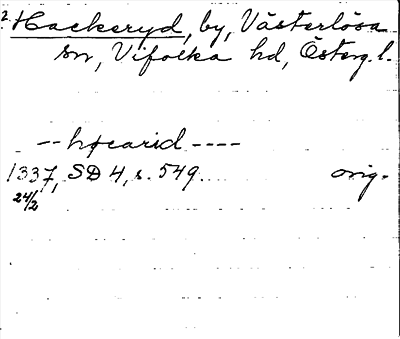 2. Hackeryd, by, Västerlösa
sn, Vifolka hd, Österg. l.
-- hɟcarid ----
1337, SD 4, s. 549. orig.
24/2